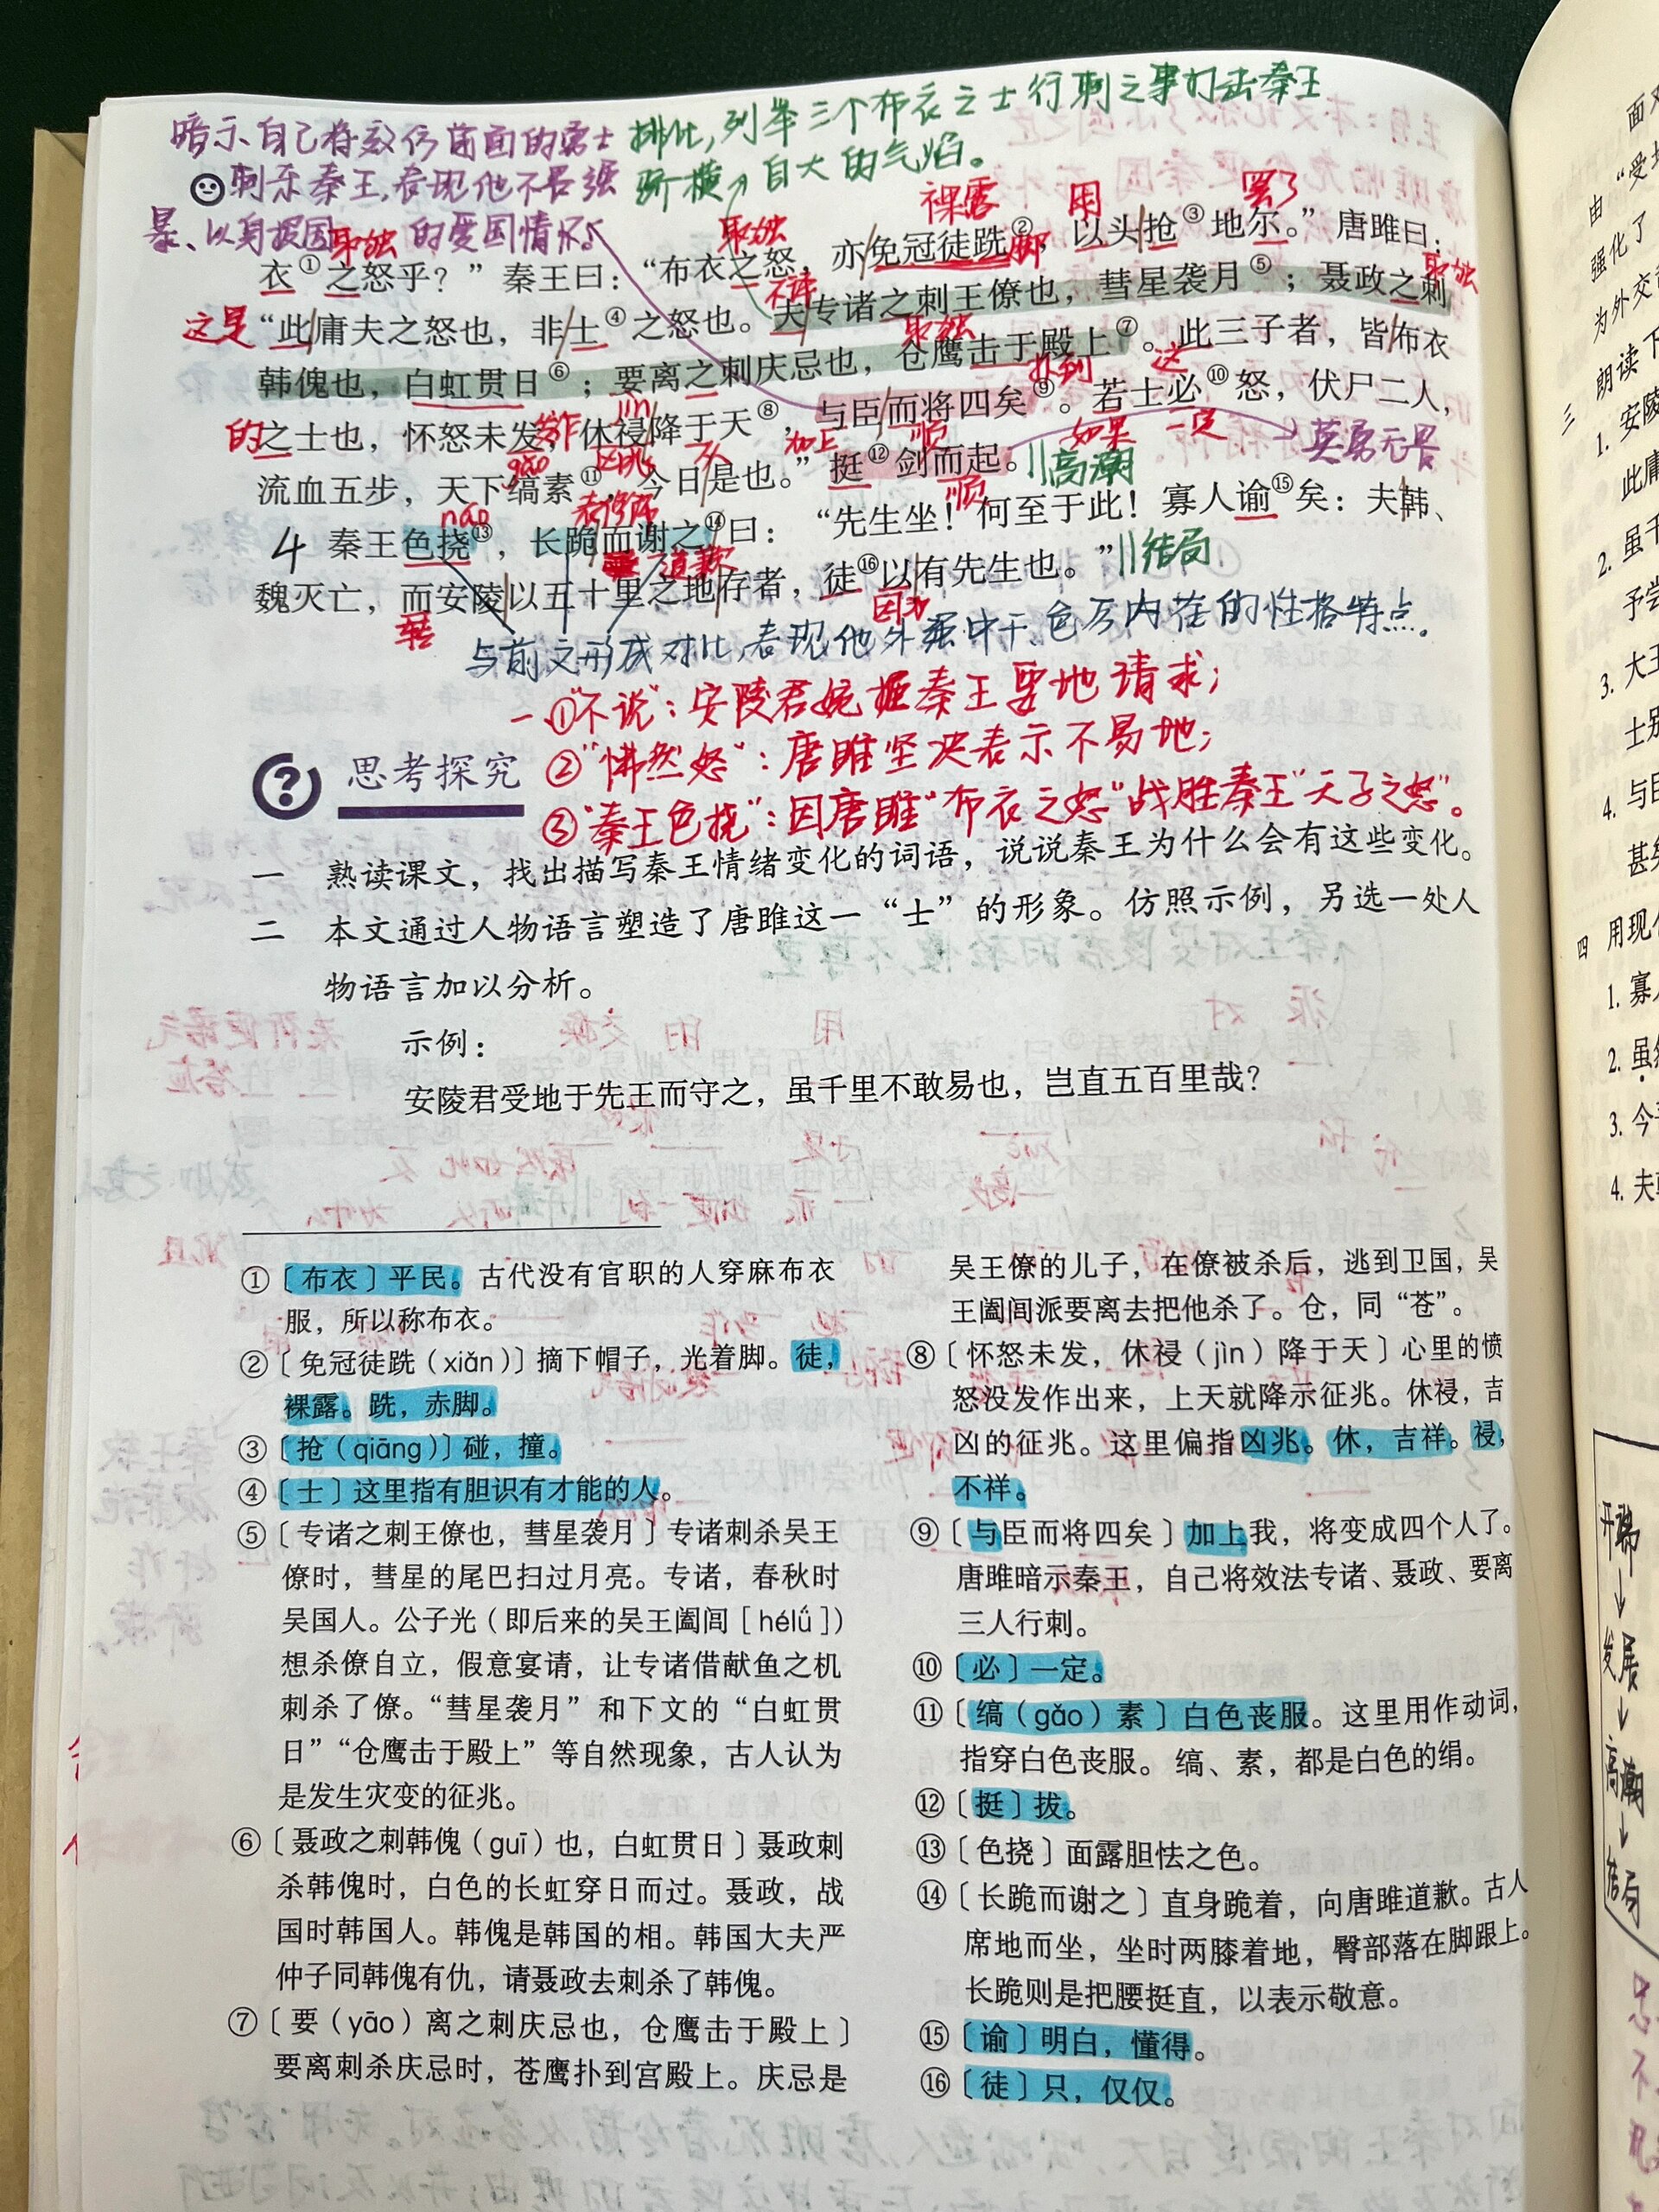 暗示自己将效仿前面的勇士
刺杀秦王,表现他不畏强
暴、以身报国的爱国情怀。
排比,列举三个布衣之士行刺之事打击秦王
骄横、自大的气焰。
取独
取独
裸露
用
罢了
脚
衣①之怒乎？”秦王曰：“布衣之怒，亦免冠徒跣②，以头抢③地尔。”唐雎曰：
取独
这是
不译
“此庸夫之怒也，非士④之怒也。夫专诸之刺王僚也，彗星袭月⑤；聂政之刺
取独
韩傀也，白虹贯日⑥；要离之刺庆忌也，仓鹰击于殿上⑦。此三子者，皆布衣
扑到
这
的
发作
jìn
之士也，怀怒未发，休祲降于天⑧，与臣而将四矣⑨。若士必⑩怒，伏尸二人，
gǎo
凶兆
从
加上
顺
如果
一定
英勇无畏
流血五步，天下缟素⑪，今日是也。”挺⑫剑而起。
高潮
náo
表修饰
顺
4
秦王色挠⑬，长跪而谢之⑭曰：“先生坐！何至于此！寡人谕⑮矣：夫韩、
道歉
结局
魏灭亡，而安陵以五十里之地存者，徒⑯以有先生也。”
转
因为
与前文形成对比,表现他外强中干、色厉内荏的性格特点。
一、①“不说”：安陵君婉拒秦王要地请求；
②“怫然怒”：唐雎坚决表示不易地；
③“秦王色挠”：因唐雎“布衣之怒”战胜秦王“天子之怒”。
思考探究
一 熟读课文，找出描写秦王情绪变化的词语，说说秦王为什么会有这些变化。
二 本文通过人物语言塑造了唐雎这一“士”的形象。仿照示例，另选一处人
物语言加以分析。
示例：
安陵君受地于先王而守之，虽千里不敢易也，岂直五百里哉？
①〔布衣〕平民。古代没有官职的人穿麻布衣
服，所以称布衣。
②〔免冠徒跣（xiǎn）〕摘下帽子，光着脚。徒，
裸露。跣，赤脚。
③〔抢（qiāng）〕碰，撞。
④〔士〕这里指有胆识有才能的人。
⑤〔专诸之刺王僚也，彗星袭月〕专诸刺杀吴王
僚时，彗星的尾巴扫过月亮。专诸，春秋时
吴国人。公子光（即后来的吴王阖闾［hélǘ］）
想杀僚自立，假意宴请，让专诸借献鱼之机
刺杀了僚。“彗星袭月”和下文的“白虹贯
日”“仓鹰击于殿上”等自然现象，古人认为
是发生灾变的征兆。
⑥〔聂政之刺韩傀（guī）也，白虹贯日〕聂政刺
杀韩傀时，白色的长虹穿日而过。聂政，战
国时韩国人。韩傀是韩国的相。韩国大夫严
仲子同韩傀有仇，请聂政去刺杀了韩傀。
⑦〔要（yāo）离之刺庆忌也，仓鹰击于殿上〕
要离刺杀庆忌时，苍鹰扑到宫殿上。庆忌是
吴王僚的儿子，在僚被杀后，逃到卫国，吴
王阖闾派要离去把他杀了。仓，同“苍”。
⑧〔怀怒未发，休祲（jìn）降于天〕心里的愤
怒没发作出来，上天就降示征兆。休祲，吉
凶的征兆。这里偏指凶兆。休，吉祥。祲，
不祥。
⑨〔与臣而将四矣〕加上我，将变成四个人了。
唐雎暗示秦王，自己将效法专诸、聂政、要离
三人行刺。
⑩〔必〕一定。
⑪〔缟（gǎo）素〕白色丧服。这里用作动词，
指穿白色丧服。缟、素，都是白色的绢。
⑫〔挺〕拔。
⑬〔色挠〕面露胆怯之色。
⑭〔长跪而谢之〕直身跪着，向唐雎道歉。古人
席地而坐，坐时两膝着地，臀部落在脚跟上。
长跪则是把腰挺直，以表示敬意。
⑮〔谕〕明白，懂得。
⑯〔徒〕只，仅仅。
面对
由“受地
强化了
为外交
三 朗读下
1. 安陵
此庸
2. 虽千
予尝
3. 大王
士别
4. 与臣
甚矣
四 用现代
1. 寡人
2. 虽然
3. 今
4. 夫韩
开端
发展
高潮
结局